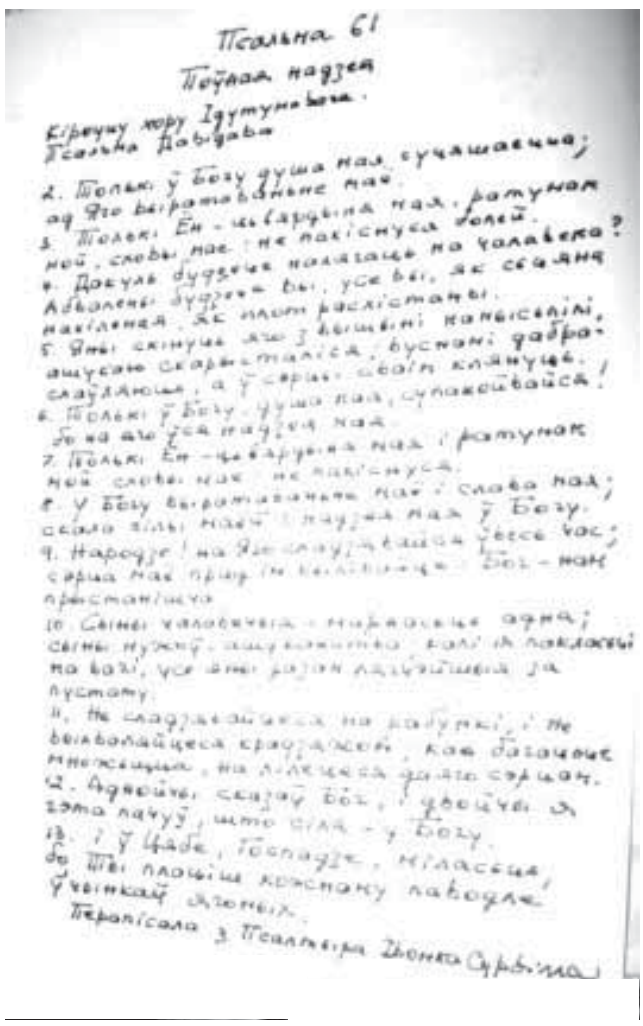 Псальма 61
Поўная надзея
Кіроўцу хору Ідутумавага.
Псальма Давідава
2. Толькі ў Богу душа мая суцяшаецца;
ад Яго выратаваньне маё.
3. Толькі Ён - цьвярдыня мая, ратунак
мой, сховы мае: не пахіснуся болей.
4. Дакуль будзеце налягаць на чалавека?
Абвалены будзеце вы, усе вы, як сьцяна
нахіленая, як плот расхістаны.
5. Яны скінуць яго з вышыні намысьлілі,
ашукаю скарысталіся, вуснамі дабра-
слаўляюць, а ў сэрцы сваім клянуць.
6. Толькі ў Богу, душа мая, супакойвайся!
бо на яго ўся надзея мая.
7. Толькі Ён - цьвярдыня мая і ратунак
мой сховы мае не пахіснуся.
8. У Богу выратаваньне маё і слава мая;
скала сілы маёй і надзея мая ў Богу.
9. Народзе! на Яго спадзявайся ўвесь час;
сэрца маё прад ім вылівайце: Бог - нам
прыстанішча
10. Сыны чалавечыя - марнасьць адна;
сыны мужоў - ашуканства, калі іх пакласьці
на вагі, усе яны разам лягчэйшыя за
пустату.
11. Не спадзявайцеся на рабункі, і не
выхваляйцеся крадзяжом, как багацьце
множыцца, на лілецеся дыяго сэрцам.
12. Аднойчы сказаў Бог, і двойчы я
гэта пачуў, што сіла - у Богу.
13. і ў Цябе, Госпадзе, міласьць,
бо Ты плаціш кожнаму паводле
ўчынкаў ягоных.
Перапісала з Псалтыра Івонка Сурвілла